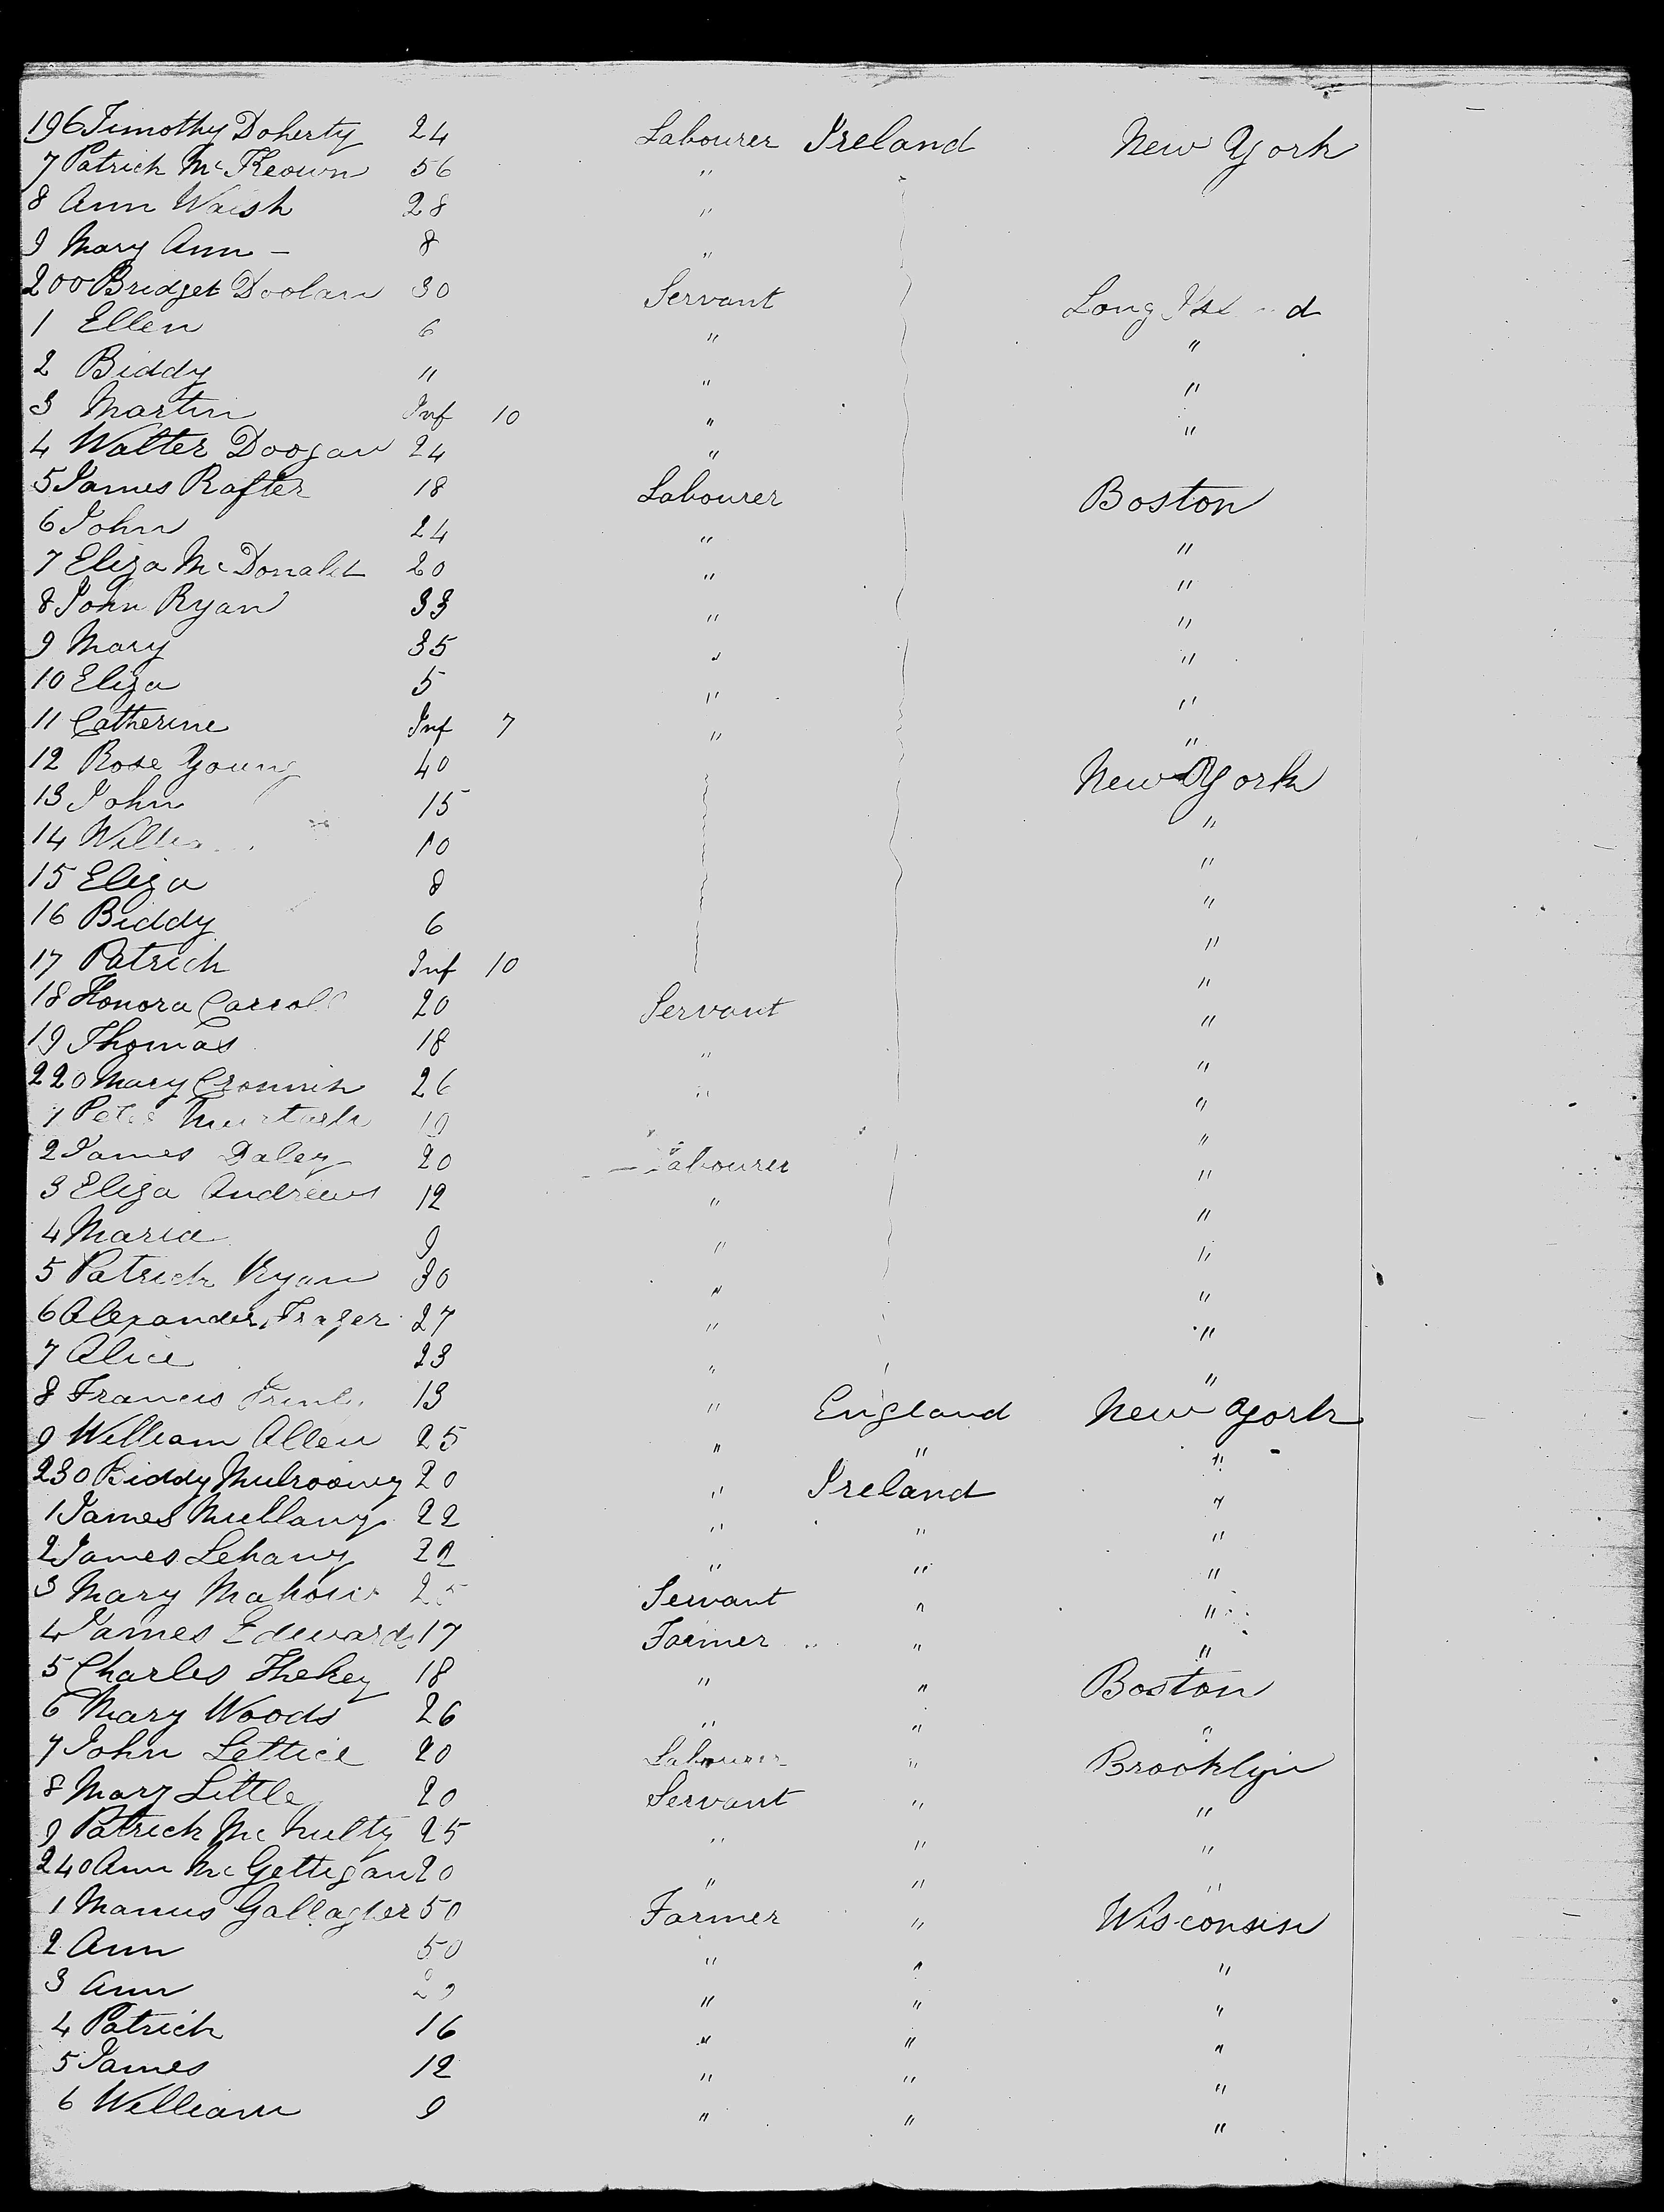 196 Timothy Doherty 24 Labourer Ireland New York
7 Patrick McKeown 56 "
8 Ann Walsh 28 "
9 Mary Ann - 8 "
200 Bridget Doolan 30 Servant Long Island
1 Ellen 6 " "
2 Biddy " " "
3 Martin Inf 10 " "
4 Walter Doogan 24 "
5 James Rafter 18 Labourer Boston
6 John 24 " "
7 Eliza McDonald 20 " "
8 John Ryan 33 " "
9 Mary 35 " "
10 Eliza 5 " "
11 Catherine Inf 7 " "
12 Rose Young 40 New York
13 John 15 "
14 Willia 10 "
15 Eliza 8 "
16 Biddy 6 "
17 Patrick Inf 10 "
18 Honora Carroll 20 Servant "
19 Thomas 18 " "
220 Mary Cronnin 26 " "
1 Peter Murtagh 10 "
2 James Daley 20 Labourer "
3 Eliza Andrews 12 " "
4 Maria 9 " "
5 Patrick Ryan 30 " "
6 Alexander Frazer 27 " "
7 Alice 23 " "
8 Francis 13 " England New York
9 William Allen 25 " " "
230 Biddy Mulroony 20 " Ireland "
1 James Mullany 22 " " "
2 James Lehany 22 " " "
3 Mary Mahon 25 Servant " "
4 James Edwards 17 Farmer " "
5 Charles Thekey 18 " " Boston
6 Mary Woods 26 " " "
7 John Lettice 20 Labourer " Brooklyn
8 Mary Little 20 Servant " "
9 Patrick McNulty 25 " " "
240 Ann McGettigan 20 " " "
1 Manus Gallagher 50 Farmer " Wisconsin
2 Ann 50 " " "
3 Ann 20 " " "
4 Patrick 16 " " "
5 James 12 " " "
6 William 9 " " "